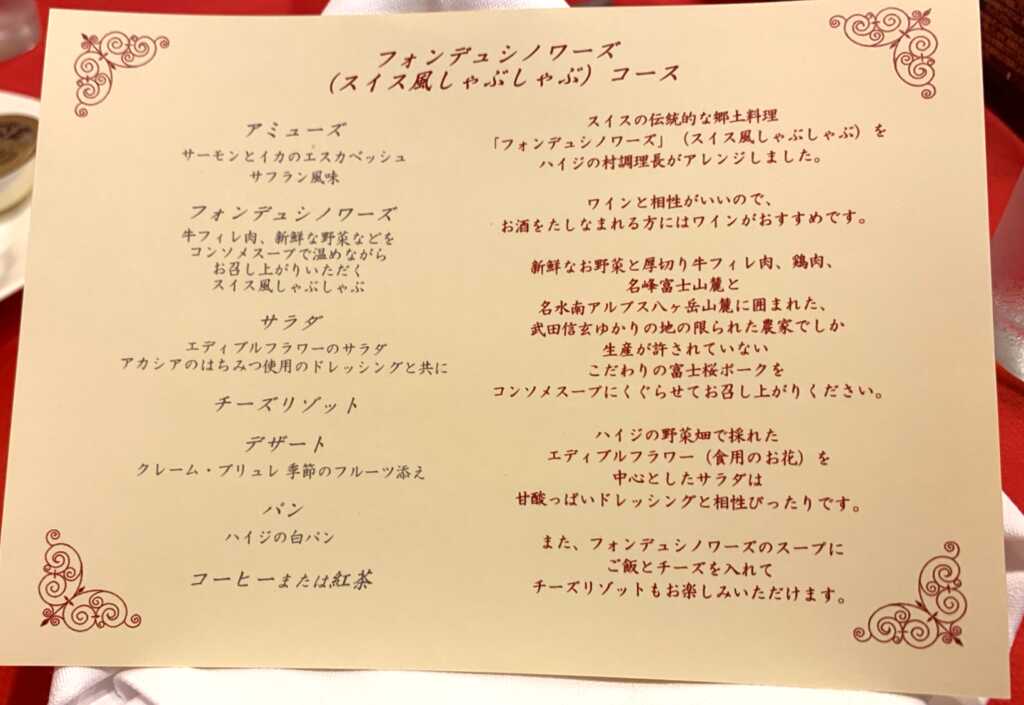 フォンデュシノワーズ
(スイス風しゃぶしゃぶ) コース
アミューズ
サーモンとイカのエスカベッシュ
サフラン風味
フォンデュシノワーズ
牛フィレ肉、新鮮な野菜などを
コンソメスープで温めながら
お召し上がりいただく
スイス風しゃぶしゃぶ
サラダ
エディブルフラワーのサラダ
アカシアのはちみつ使用のドレッシングと共に
チーズリゾット
デザート
クレーム・ブリュレ 季節のフルーツ添え
パン
ハイジの白パン
コーヒーまたは紅茶
スイスの伝統的な郷土料理
「フォンデュシノワーズ」(スイス風しゃぶしゃぶ) を
ハイジの村調理長がアレンジしました。
ワインと相性がいいので、
お酒をたしなまれる方にはワインがおすすめです。
新鮮なお野菜と厚切り牛フィレ肉、鶏肉、
名峰富士山麓と
名水南アルプス八ヶ岳山麓に囲まれた、
武田信玄ゆかりの地の限られた農家でしか
生産が許されていない
こだわりの富士桜ポークを
コンソメスープにくぐらせてお召し上がりください。
ハイジの野菜畑で採れた
エディブルフラワー (食用のお花) を
中心としたサラダは
甘酸っぱいドレッシングと相性ぴったりです。
また、フォンデュシノワーズのスープに
ご飯とチーズを入れて
チーズリゾットもお楽しみいただけます。